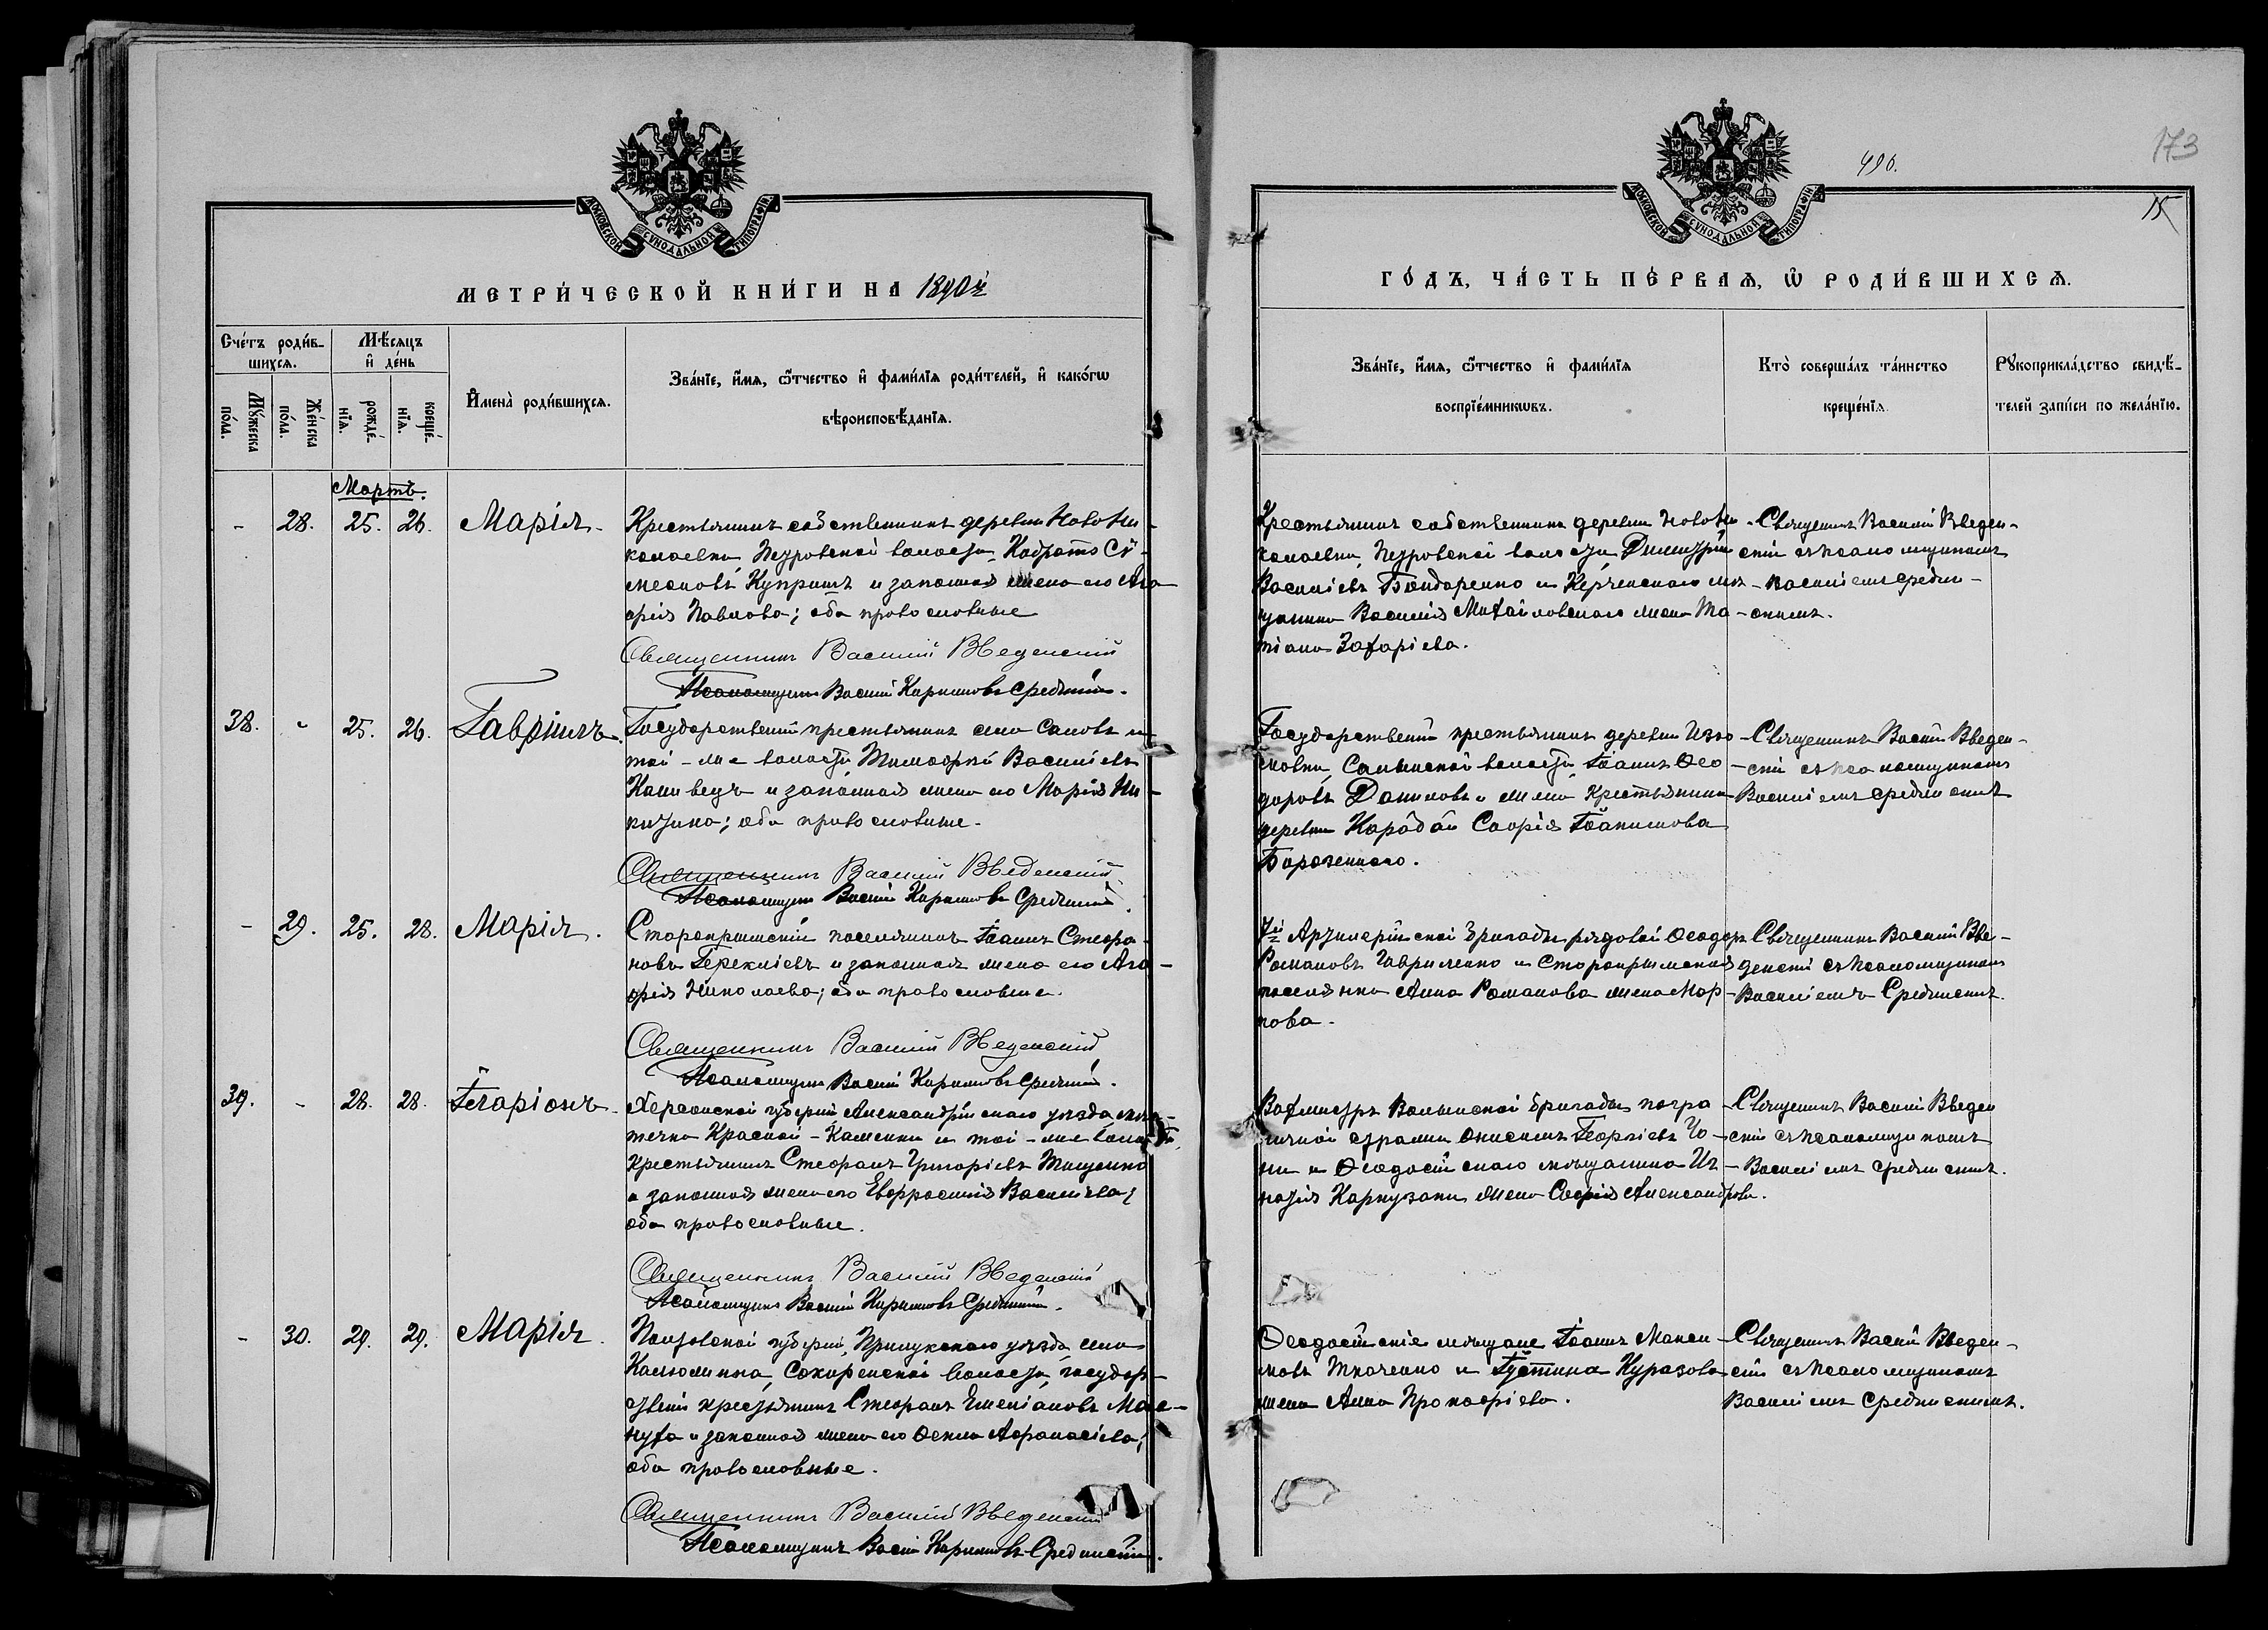 МОСКОВСКОЙ СѴНОДАЛЬНОЙ ТИПОГРАФІИ
МЕТРИ́ЧЕСКОЙ КНИ́ГИ НА 1890й
Сче́тъ роди́в-
шихсѧ.
Мꙋ́жеска
по́ла.
Же́нска
по́ла.
Мѣ́сѧцъ
и҆ де́нь
рожде́-
нїѧ.
креще́-
нїѧ.
И҆мена̀ роди́вшихсѧ.
Зва́нїе, и҆́мѧ, ѻ҆́тчество и҆ фами́лїѧ роди́телей, и҆ како́гѡ
вѣроисповѣ́данїѧ.
Мартъ.
- 28. 25. 26. Марія.
Крестьянинъ собственникъ деревни Ново Ни-
колаевки, Петровской волости,
меоновъ Куприкъ и законная жена его Ага-
фія Павлова; оба православные
Священникъ Василій Введенскій
Псаломщикъ Василій Карповъ Срединскій.
38. - 25. 26. Гавріилъ.
Государственный крестьянинъ села и
той-же волости, Тимофей Василіевъ
и законная жена его Марія Ни-
китина; оба православные.
Священникъ Василій Введенскій
Псаломщикъ Василій Карповъ Срединскій.
- 29. 25. 28. Марія.
Старокрымскій поселянинъ Іоаннъ Стефа-
новъ и законная жена его Ага-
фія Николаева; оба православные.
Священникъ Василій Введенскій
Псаломщикъ Василій Карповъ Срединскій.
39. - 28. 28. Іларіонъ.
Херсонской губерніи Александрійскаго уѣзда мѣс-
течка Красной-Каменки и той-же волости,
крестьянинъ Стефанъ Григоріевъ Тищенко
и законная жена его Евфросинія Василіева;
оба православные.
Священникъ Василій Введенскій
Псаломщикъ Василій Карповъ Срединскій.
- 30. 29. 29. Марія.
Полтавской губерніи, Прилукскаго уѣзда, села
волости, государ-
ственный крестьянинъ Стефанъ Емеліановъ
и законная жена его Аѳанасіева;
оба православные.
Священникъ Василій Введенскій
Псаломщикъ Василій Карповъ Срединскій.
МОСКОВСКОЙ СѴНОДАЛЬНОЙ ТИПОГРАФІИ
173
15
ГО́ДЪ, ЧА́СТЬ ПЕ́РВАѦ, Ѡ҆ РОДИ́ВШИХСѦ.
Зва́нїе, и҆́мѧ, ѻ҆́тчество и҆ фами́лїѧ
воспрїе́мникѡвъ.
Кто̀ соверша́лъ та́инство
креще́нїѧ
Рꙋкоприкла́дство свидѣ́-
телей за́писи по жела́нїю.
Крестьянинъ собственникъ деревни Ново Ни-
колаевки, Петровской волости, Димитрій
Василіевъ Бондаренко и Керченскаго мѣ-
щанина Василія Михайловскаго жена Та-
тіана Захаріева.
Священникъ Василій Введен-
скій съ псаломщикомъ
Василіемъ Средин-
скимъ.
Государственный крестьянинъ деревни Изю-
мовки, Салынской волости, Іоаннъ Ѳео-
доровъ Даниловъ и жена крестьянина
деревни Софія Іоакимова
Священникъ Василій Введен-
скій съ псаломщикомъ
Василіемъ Срединскимъ
7й Артиллерійской бригады рядовой Ѳеодоръ
Романовъ Гавриленко и Старокрымская
поселянка Анна Романова жена Мар-
кова.
Священникъ Василій Вве-
денскій съ псаломщикомъ
Василіемъ Срединскимъ.
Вахмистръ Волынской бригады погра-
ничной стражи Онисимъ Георгіевъ
и Ѳеодосійскаго мѣщанина Иг-
натія жена Софія Александрова.
Священникъ Василій Введен
скій съ псаломщикомъ
Василіемъ Срединскимъ.
Ѳеодосійскіе мѣщане Іоаннъ Макси-
мовъ Ткаченко и Іустина
жена Анна Прокофіева.
Священникъ Василій Введен-
скій съ псаломщикомъ
Василіемъ Срединскимъ.